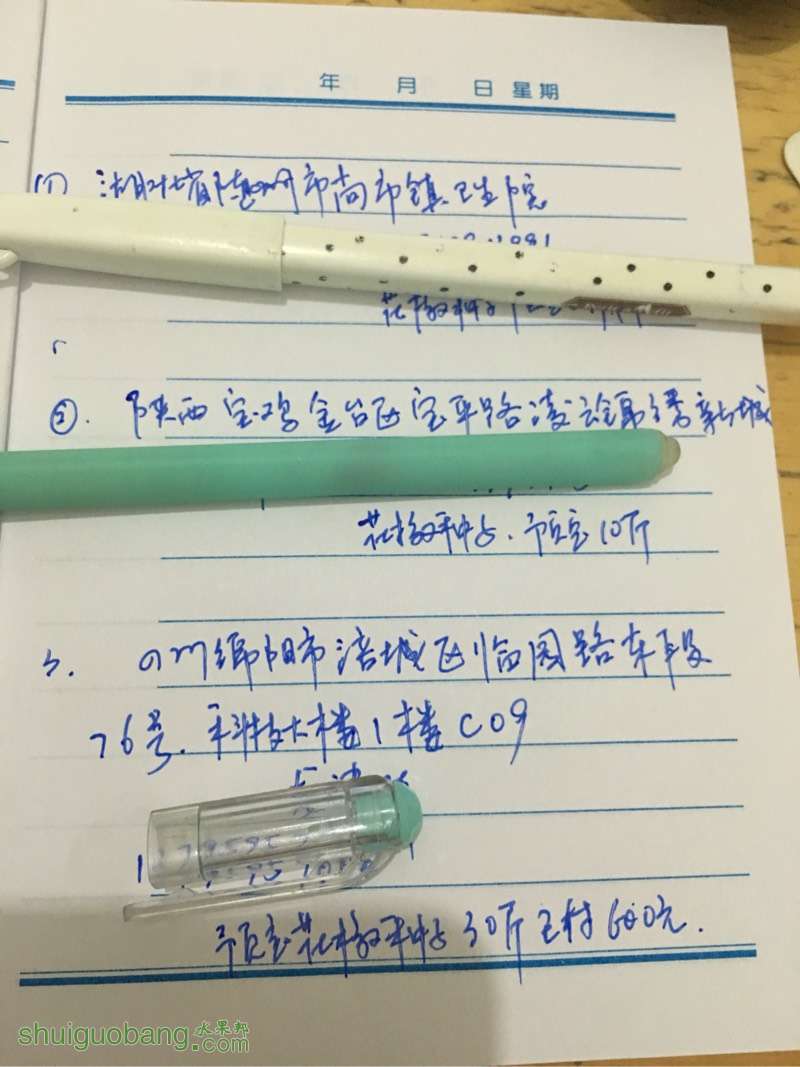 年 月 日 星期
(1) 湖北省随州市尚市镇卫生院
1981
花椒种子
②. 陕西宝鸡金台区宝平路凌云锦绣新城
花椒种子. 预定10斤
3. 四川绵阳市涪城区临园路东段
76号. 科技大楼1楼C09
预定花椒种子30斤已付600元.
水果邦
shuiguobang.com